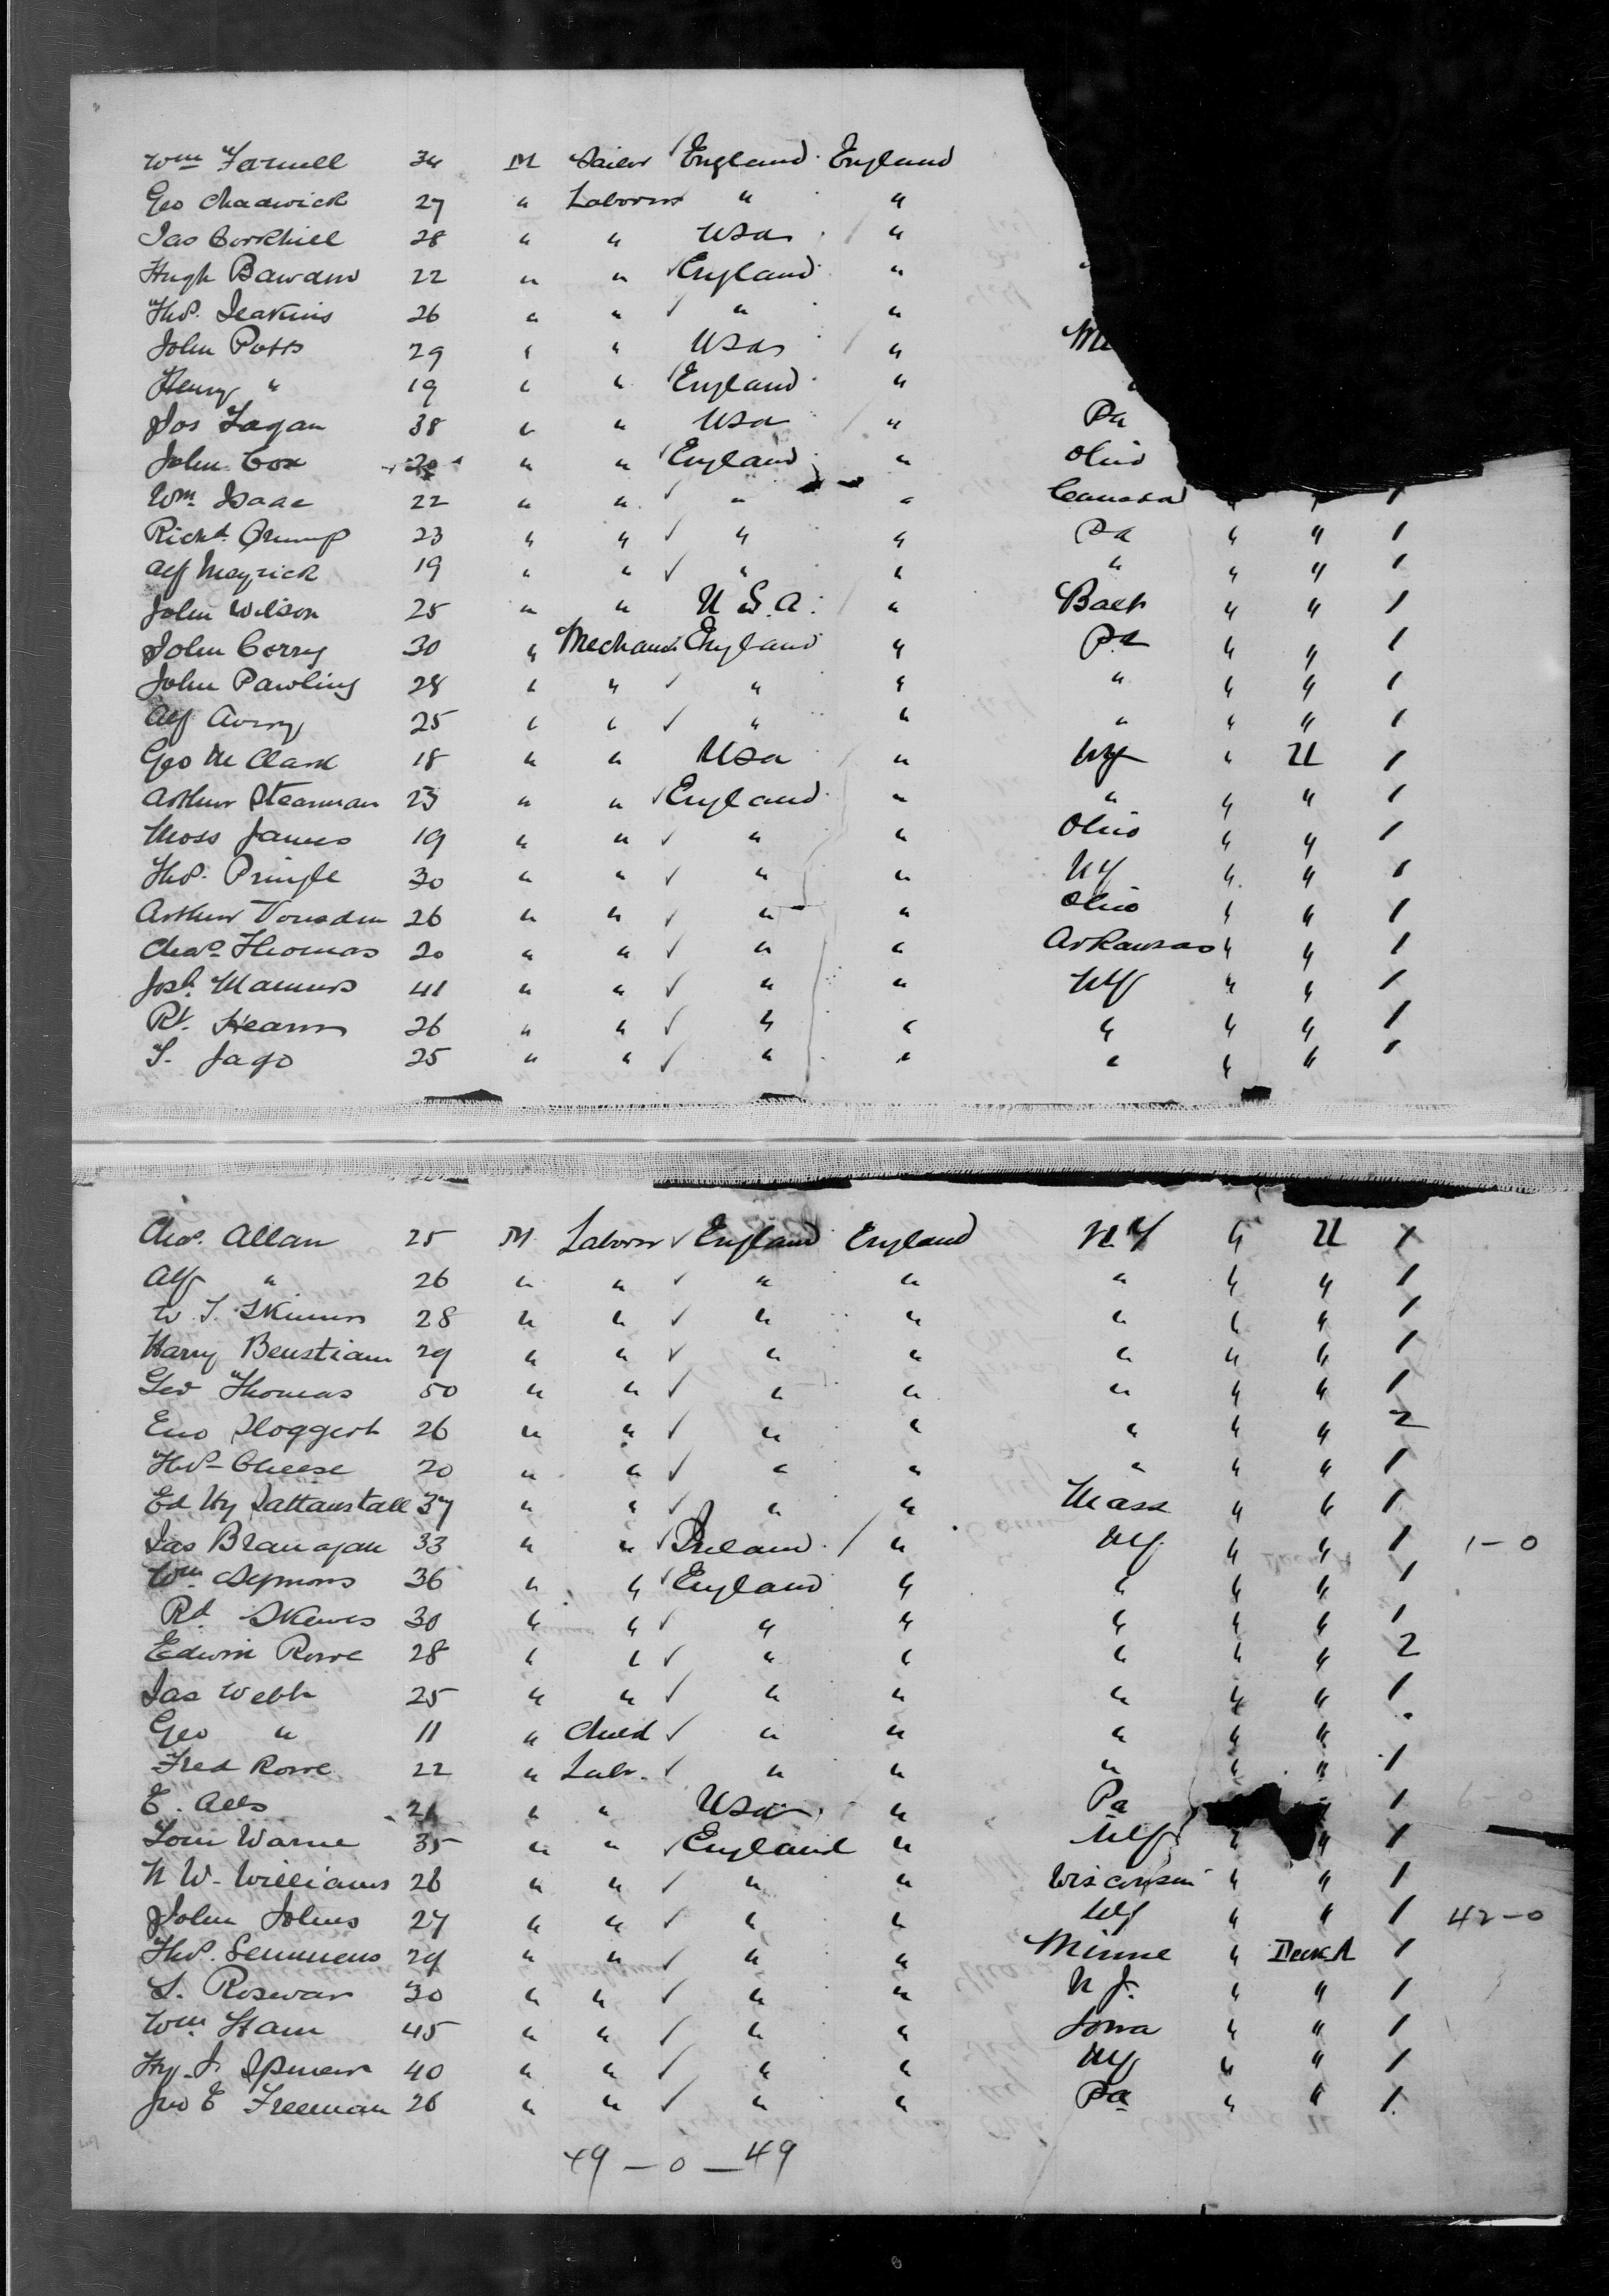 Wm Farnell 34 M Sailor England England
Geo Chadwick 27 " Laborer " "
Jas Corkhill 28 " " USA "
Hugh Bawden 22 " " England "
Thos. Jenkins 26 " " " "
John Potts 29 " " USA "
Henry " 19 " " England "
Jos Fagan 38 " " USA " Pa
John Cox " " England " Ohio
Wm Isaac 22 " " " " Canada " " 1
Richd. Crump 23 " " " " Pa " " 1
Alf Meyrick 19 " " " " " " " 1
John Wilson 25 " " U.S.A. " Balt " " 1
John Corry 30 " Mechanic England " Pa " " 1
John Pawling 28 " " " " " " " 1
Alf Avery 25 " " " " " " " 1
Geo M Clark 18 " " USA " NY " U 1
Arthur Stearman 23 " " England " " " " 1
Moss James 19 " " " " Ohio " " 1
Thos. Pringle 30 " " " " NY " " 1
Arthur Vousden 26 " " " " Ohio " " 1
Chas Thomas 20 " " " " Arkansas " " 1
Josh. Manners 41 " " " " NY " " 1
Rt. Hearn 26 " " " " " " " 1
S. Jago 25 " " " " " " " 1
Chas. Allan 25 M Laborer England England NY " U 1
Alf " 26 " " " " " " " 1
W J. Skinner 28 " " " " " " " 1
Harry 29 " " " " " " " 1
Geo Thomas 50 " " " " " " " 1
Hoggert 26 " " " " " " " 2
Thos Cheese 20 " " " " " " " 1
Ed Hy Tattanstall 37 " " " " Mass " " 1
Jas Branagan 33 " " Ireland " NY " " 1 1-0
Wm. Symons 36 " " England " " " " 1
Rd Skewes 30 " " " " " " " 1
Edwin Rowe 28 " " " " " " " 2
Jas Webb 25 " " " " " " " 1
Geo " 11 " Child " " " " "
Fred Rowe 22 " Labr. " " " " " 1
E. " " USA " Pa " 1
Tom Warne 35 " " England " NY " " 1
N W. Williams 26 " " " " Wisconsin " " 1
John Johns 27 " " " " NY " " 1 42-0
Thos. Semmens 29 " " " " Minne " Deck A 1
S. Rosevar 30 " " " " N J. " " 1
Wm. Ham 45 " " " " Iowa " " 1
Hy. J. 40 " " " " NY " " 1
Jno E Freeman 26 " " " " Pa " " 1
49 - 0 - 49